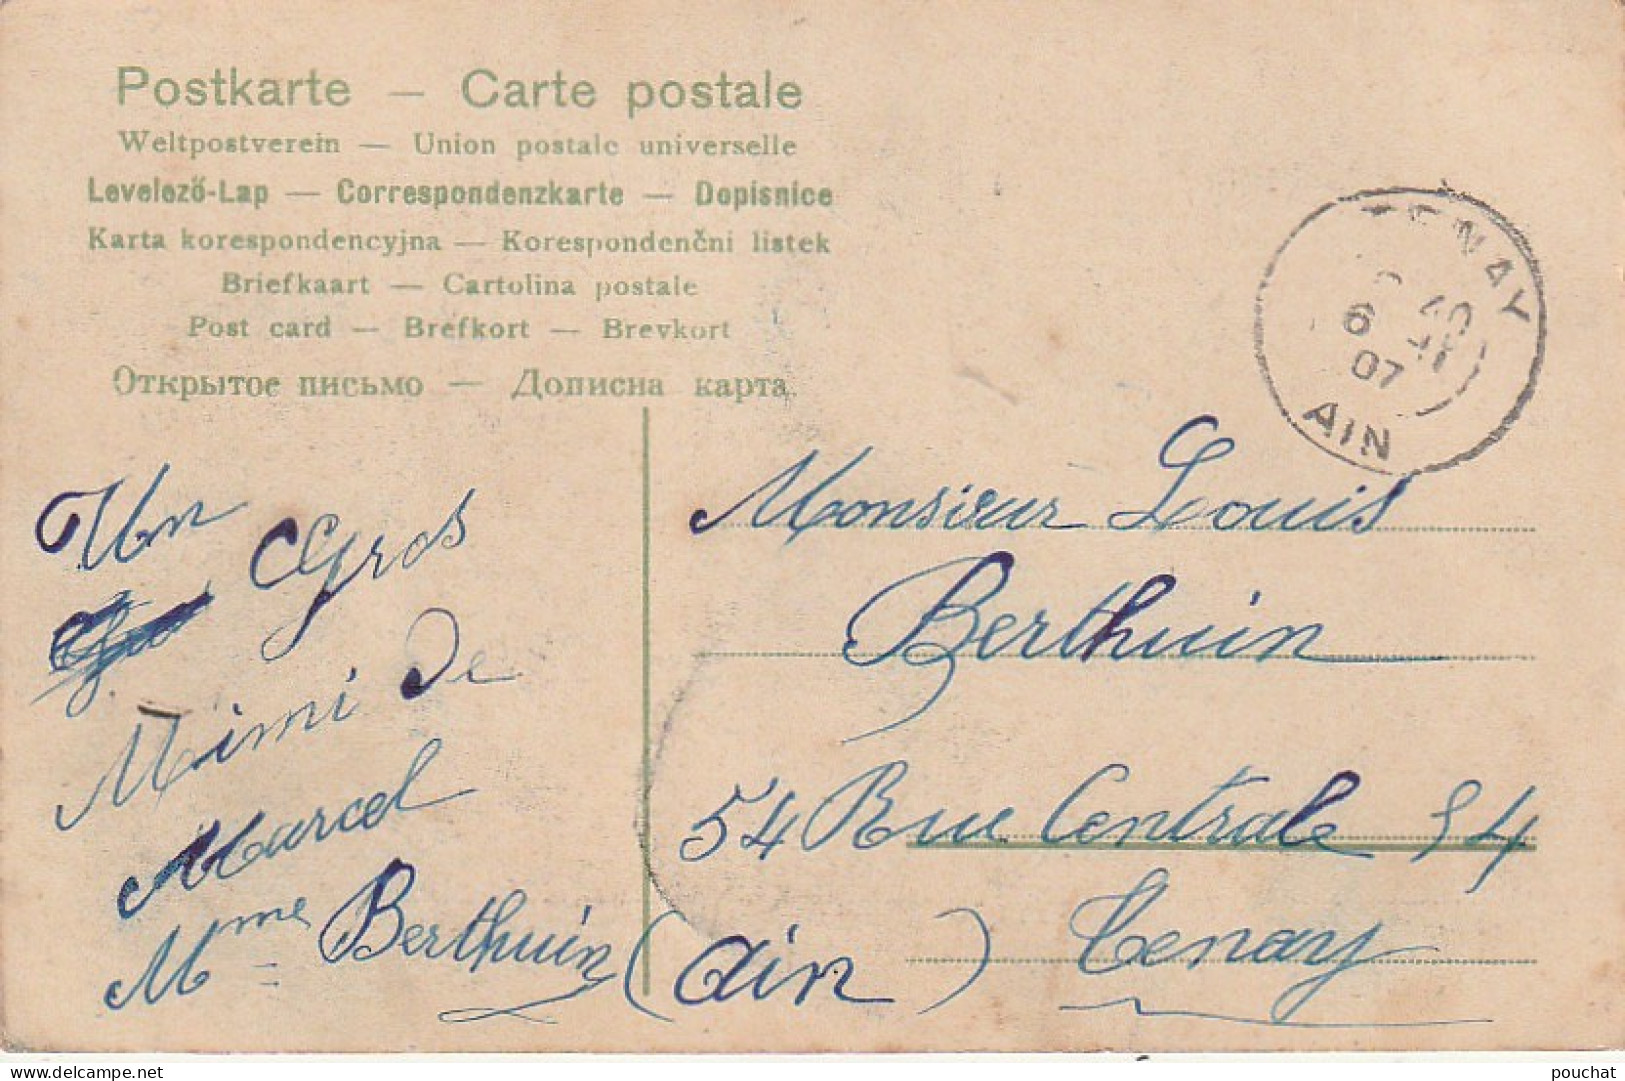 Postkarte — Carte postale
Weltpostverein — Union postale universelle
Levelező-Lap — Correspondenzkarte — Dopisnice
Karta korespondencyjna — Korespondenčni listek
Briefkaart — Cartolina postale
Post card — Brefkort — Brevkort
Открытое письмо — Дописна карта
TENAY
40
6
07
AIN
Un
Gros
Mimi de
Marcel
Mme Berthuin
Monsieur Louis
Berthuin
54 Rue Centrale 54
Tenay
(Ain)
delcampe.net
pouchat